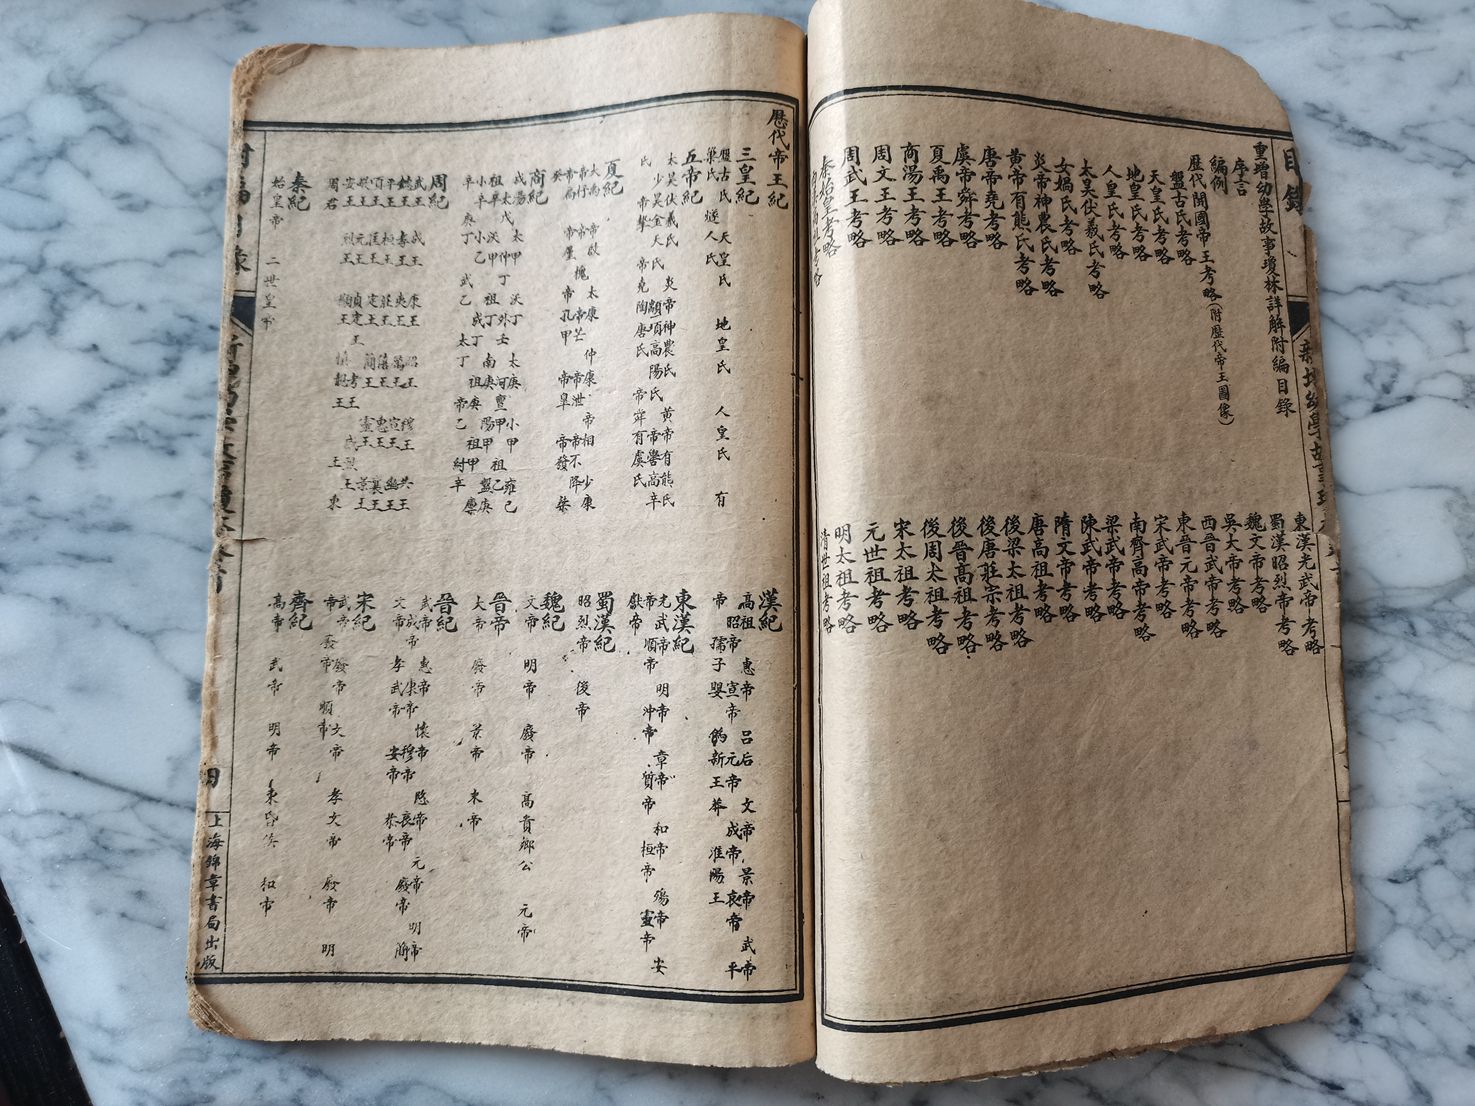 重增幼學故事瓊林詳解附編目錄
序言
編例
歷代開國帝王考略(附歷代帝王圖像)
盤古氏考略
天皇氏考略
地皇氏考略
人皇氏考略
太昊伏羲氏考略
女媧氏考略
炎帝神農氏考略
黃帝有熊氏考略
唐帝堯考略
虞帝舜考略
夏禹王考略
商湯王考略
周文王考略
周武王考略
秦始皇考略
東漢光武帝考略
蜀漢昭烈帝考略
魏文帝考略
吳大帝考略
西晉武帝考略
東晉元帝考略
宋武帝考略
南齊高帝考略
梁武帝考略
陳武帝考略
隋文帝考略
唐高祖考略
後梁太祖考略
後唐莊宗考略
後晉高祖考略
後周太祖考略
宋太祖考略
元世祖考略
明太祖考略
清世祖考略
目錄
歷代帝王紀
三皇紀
盤古氏 天皇氏 地皇氏 人皇氏 有
巢氏 燧人氏
五帝紀
太昊伏羲氏 炎帝神農氏 黃帝有熊氏
少昊金天氏 顓頊高陽氏 帝嚳高辛
氏 帝摯 帝堯陶唐氏 帝舜有虞氏
夏紀
大禹 帝啟 太康 仲康 帝相 少康
帝杼 帝槐 帝芒 帝泄 帝不降
帝扃 帝厪 帝孔甲 帝皋 帝發 桀
癸
商紀
成湯 太甲 沃丁 太庚 小甲 雍己
太戊 仲丁 外壬 河亶甲 祖乙
祖辛 沃甲 祖丁 南庚 陽甲 盤庚
小辛 小乙 武丁 祖庚 祖甲 廩
辛 庚丁 武乙 太丁 帝乙 紂辛
周紀
武王 成王 康王 昭王 穆王 共王
懿王 孝王 夷王 厲王 宣王 幽王
平王 桓王 莊王 釐王 惠王 襄王
頃王 匡王 定王 簡王 靈王 景王
周君
秦紀
始皇帝 二世皇帝
漢紀
高祖 惠帝 呂后 文帝 景帝 武帝
昭帝 宣帝 元帝 成帝 哀帝 平
帝 孺子嬰 僞新王莽 淮陽王
東漢紀
光武帝 明帝 章帝 和帝 殤帝 安
帝 順帝 沖帝 質帝 桓帝 靈帝
獻帝
蜀漢紀
昭烈帝 後帝
魏紀
文帝 明帝 廢帝 高貴鄉公 元帝
晉帝
大帝 廢帝 景帝 末帝
晉紀
武帝 惠帝 懷帝 愍帝 元帝 明帝
成帝 康帝 穆帝 哀帝 廢帝 簡
文帝 孝武帝 安帝 恭帝
宋紀
武帝 廢帝 文帝 孝文帝 廢帝 明
帝 順帝
齊紀
高帝 武帝 明帝 東昏侯 和帝
上海錦章書局出版